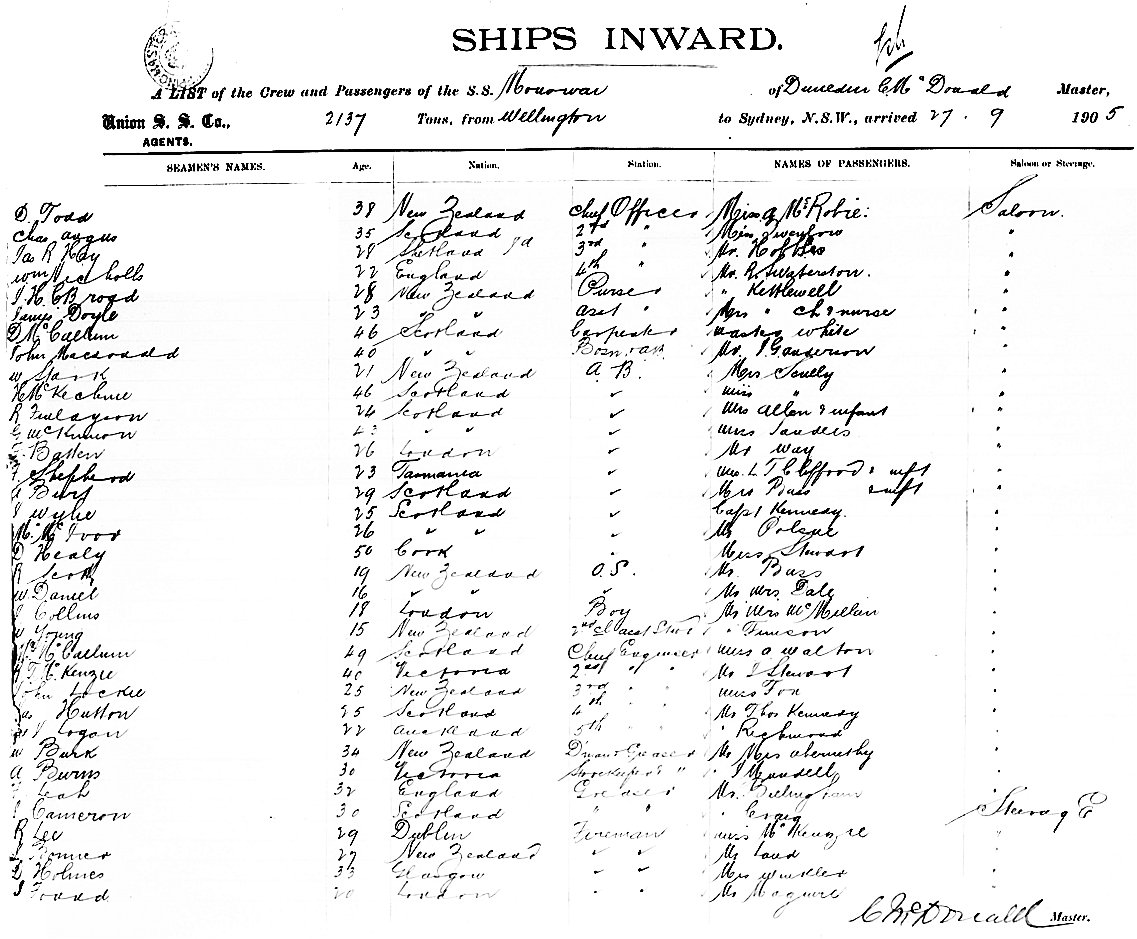 SHIPS INWARD.
A LIST of the Crew and Passengers of the S.S. Monowai of Dunedin C McDonald Master,
Union S. S. Co., AGENTS. 2137 Tons, from Wellington to Sydney, N.S.W., arrived 27 . 9 1905
SEAMEN'S NAMES. Age. Nation. Station. NAMES OF PASSENGERS. Saloon or Steerage.
D Todd 38 New Zealand Chief Officer McRobie Saloon.
Chas Angus 35 Scotland 2nd " Miss "
Jas R Hay 28 Shetland Id 3rd " Mr. "
Wm Nicholls 22 England 4th " Mr. R. Swaterston. "
Broad 28 New Zealand Purser " Kettlewell "
James Doyle 23 " " asst " Mrs " ch & nurse "
D McCallum 46 Scotland Carpenter Master White "
John Macdonald 40 " " Mr. "
W 21 New Zealand A. B. Mrs Scully "
H McKechnie 46 Scotland " Miss " "
R Finlayson 24 Scotland " Mrs Allan & infant "
McKinnon " " " Miss Sanders "
Batten 26 London " Mr Way "
Shepherd 23 Tasmania " Mrs. L T Clifford & inft "
A Burt 29 Scotland " Mrs Buss & inft "
Wylie 25 Scotland " Capt Kennedy. "
M. McIvor 26 " " " Mr "
D Healy 50 Cork " Miss Stewart "
R Scott 19 New Zealand O.S. Mr. Buss "
W Daniel 16 " " " Mr Mrs Dale "
Collins 18 London Boy Mr Mrs McMillan "
W Young 15 New Zealand " "
McCallum 49 Scotland Chief Engineer Miss O Walton "
McKenzie 40 Victoria 2nd " Mr J Stewart "
John Lockie 25 New Zealand 3rd " Miss Fox "
Jas Hutton 25 Scotland 4th " Mr Thos Kennedy "
Logan 22 Auckland 5th " " Richmond "
W Burk 34 New Zealand Greaser Mr Mrs Abernethy "
A Burns 30 Victoria Storekeeper " " J Mundell "
Leah 32 England Greaser Mr. "
Cameron 30 Scotland " " " Craig Steerage
R Lee 29 Dublin Fireman Miss McKenzie "
27 New Zealand " " Mr "
Holmes 33 Glasgow " " Mrs Winkler "
London " " Mr Maguire "
C McDonald Master.